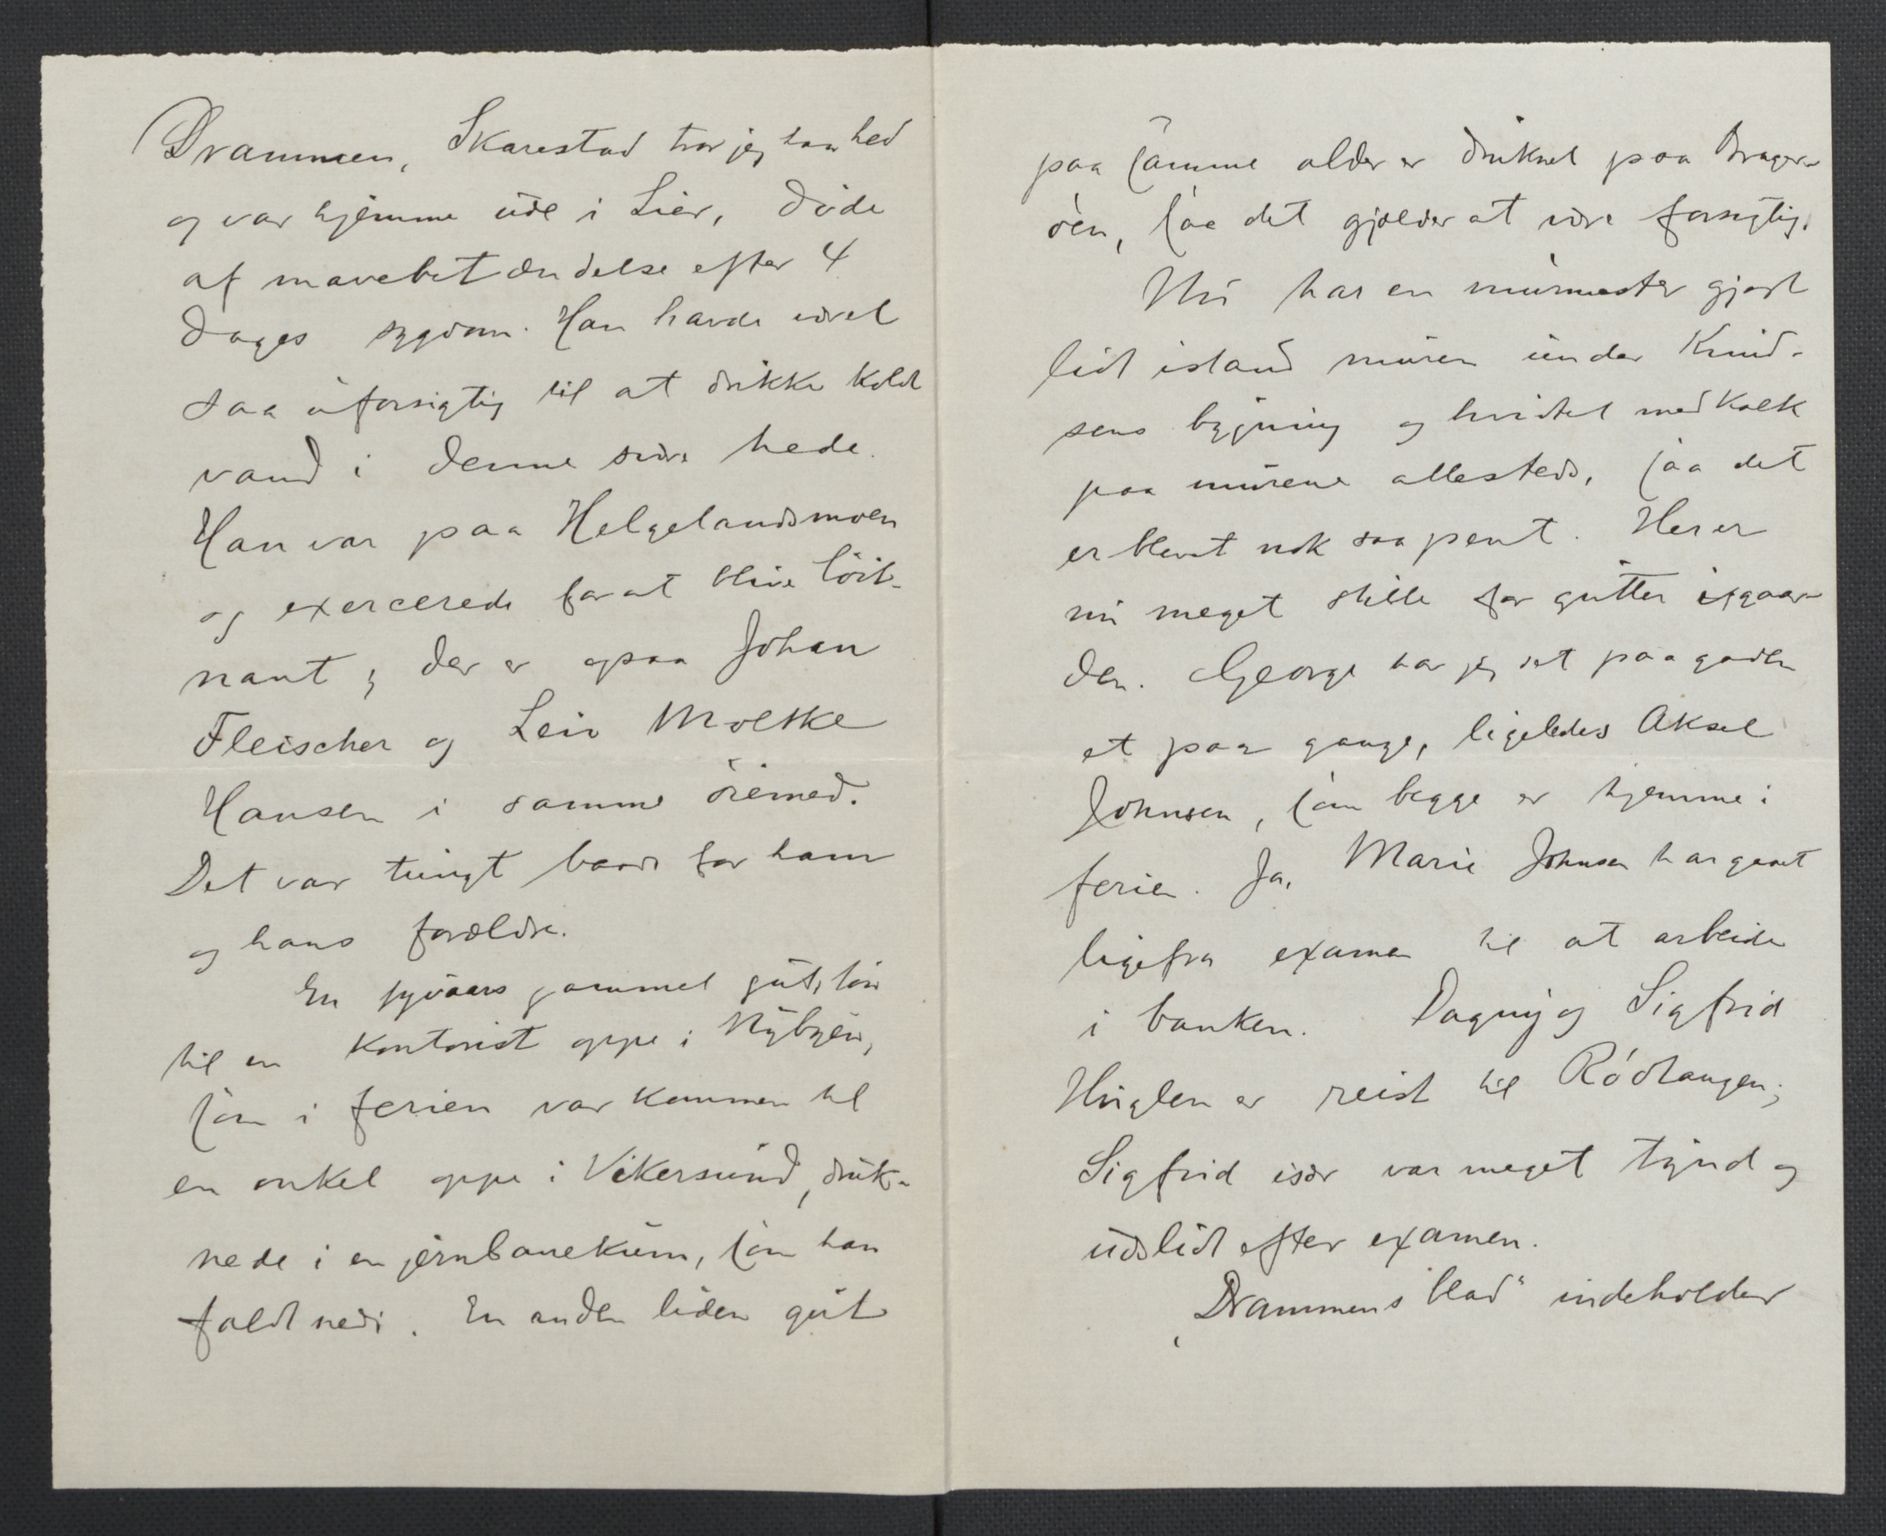 Drammen, Skarestad tror jeg han hed
og var hjemme ude i Lier, døde
af mavebetændelse efter 4
dages sygdom. Han havde været
saa uforsigtig til at drikke koldt
vand i denne svære hede.
Han var paa Helgelandsmoen
og exercerede for at blive løit-
nant; der er ogsaa Johan
Fleischer og Leiv Moltke
Hansen i samme øiemed.
Det var tungt baade for ham
og hans forældre.
En syvaars gammel gut, søn
til en kontorist oppe i Nybyen,
som i ferien var kommen til
en onkel oppe i Vikersund, druk-
nede i en jernbanekum, som han
faldt nedi. En anden liden gut
paa samme alder er druknet paa Brager-
øen, saa det gjælder at være forsigtig.
Nu har en murmester gjort
lidt istand muren under Knud-
sens bygning og hvidtet med kalk
paa murene allesteds, saa det
er blevet nok saa pent. Her er
nu meget stille for gutter i gaar-
den. George har jeg set paa gaden
et par gange, ligeledes Aksel
Johnsen, som begge er hjemme i
ferien. Ja, Marie Johnsen har gaaet
ligefra examen til at arbeide
i banken. Dagny og Sigfrid
Huglen er reist til Rødtangen;
Sigfrid især var meget tynd og
udslidt efter examen.
"Drammens blad" indeholder